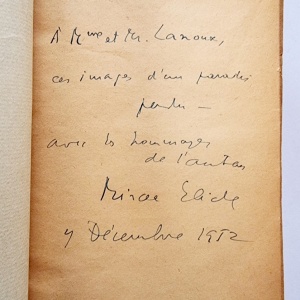 À Mme et Mr. Lanoux,
ces images d'un paradis
perdu —
avec les hommages
de l'auteur
Mircea Eliade
7 Décembre 1952